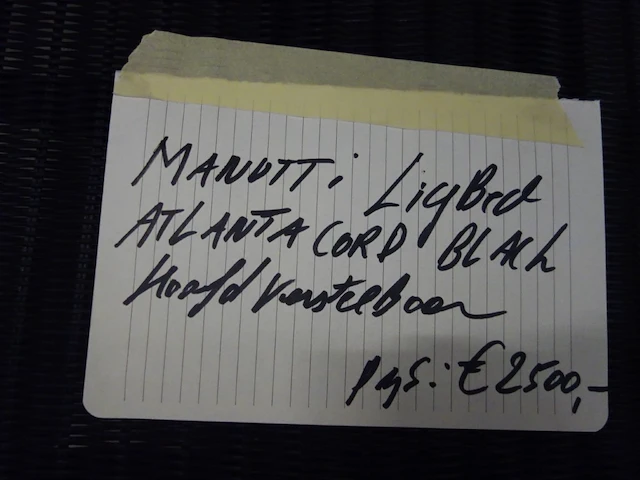 MANUTTi LigBed
ATLANTA CORD BLACK
Hoofd Verstelbaar
prijs: € 2500,-